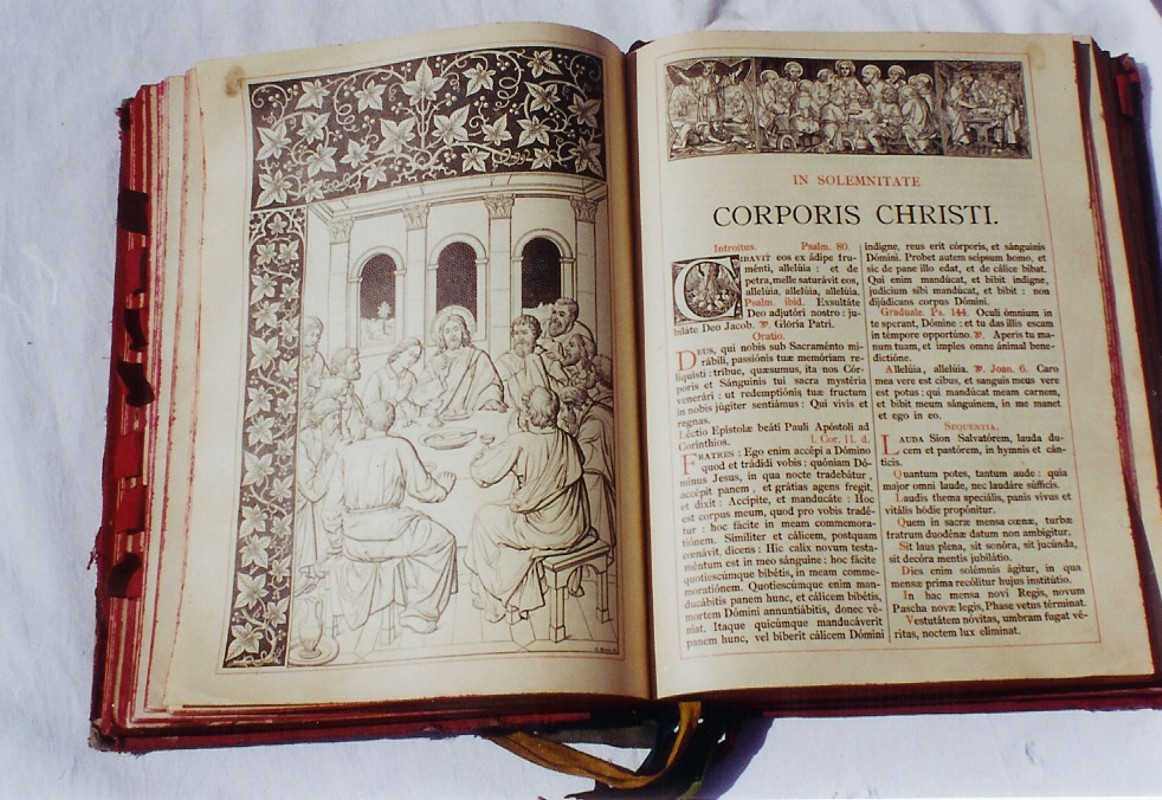 IN SOLEMNITATE
CORPORIS CHRISTI.
Introitus. Psalm. 80.
CIBAVIT eos ex ádipe fru-
ménti, allelúia : et de
petra, melle saturávit eos,
allelúia, allelúia, allelúia.
Psalm. ibid. Exsultáte
Deo adjutóri nostro : ju-
biláte Deo Jacob. ℣. Glória Patri.
Oratio.
DEUS, qui nobis sub Sacraménto mi-
rábili, passiónis tuæ memóriam re-
liquísti : tríbue, quǽsumus, ita nos Cór-
poris et Sánguinis tui sacra mystéria
venerári : ut redemptiónis tuæ fructum
in nobis júgiter sentiámus : Qui vivis et
regnas.
Léctio Epístolæ beáti Pauli Apóstoli ad
Corínthios. I. Cor. 11. d.
FRATRES : Ego enim accépi a Dómino
quod et trádidi vobis : quóniam Dó-
minus Jesus, in qua nocte tradebátur,
accépit panem, et grátias agens fregit,
et dixit : Accípite, et manducáte : Hoc
est corpus meum, quod pro vobis tradé-
tur : hoc fácite in meam commemora-
tiónem. Simíliter et cálicem, postquam
cœnávit, dicens : Hic calix novum testa-
méntum est in meo sánguine : hoc fácite
quotiescúmque bibétis, in meam comme-
moratiónem. Quotiescúmque enim man-
ducábitis panem hunc, et cálicem bibétis,
mortem Dómini annuntiábitis, donec vé-
niat. Itaque quicúmque manducáverit
panem hunc, vel bíberit cálicem Dómini
indígne, reus erit córporis, et sánguinis
Dómini. Probet autem seípsum homo, et
sic de pane illo edat, et de cálice bibat.
Qui enim mandúcat, et bibit indígne,
judícium sibi mandúcat, et bibit : non
dijúdicans corpus Dómini.
Graduale. Ps. 144. Oculi ómnium in
te sperant, Dómine : et tu das illis escam
in témpore opportúno. ℣. Aperis tu ma-
num tuam, et imples omne ánimal bene-
dictióne.
Allelúia, allelúia. ℣. Joan. 6. Caro
mea vere est cibus, et sanguis meus vere
est potus : qui mandúcat meam carnem,
et bibit meum sánguinem, in me manet
et ego in eo.
SEQUENTIA.
LAUDA Sion Salvatórem, lauda du-
cem et pastórem, in hymnis et cán-
ticis.
Quantum potes, tantum aude : quia
major omni laude, nec laudáre súfficis.
Laudis thema speciális, panis vivus et
vitális hódie propónitur.
Quem in sacræ mensa cœnæ, turbæ
fratrum duodénæ datum non ambígitur.
Sit laus plena, sit sonóra, sit jucúnda,
sit decóra mentis jubilátio.
Dies enim solémnis ágitur, in qua
mensæ prima recólitur hujus institútio.
In hac mensa novi Regis, novum
Pascha novæ legis, Phase vetus términat.
Vestutátem nóvitas, umbram fugat vé-
ritas, noctem lux elíminat.